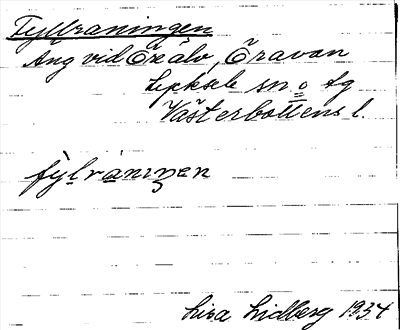 Fyllraningen
Äng vid Öreälv, Öravan
Lycksele sn o tg
Västerbottens l.
fylråniŋen
Lisa Lidberg 1934